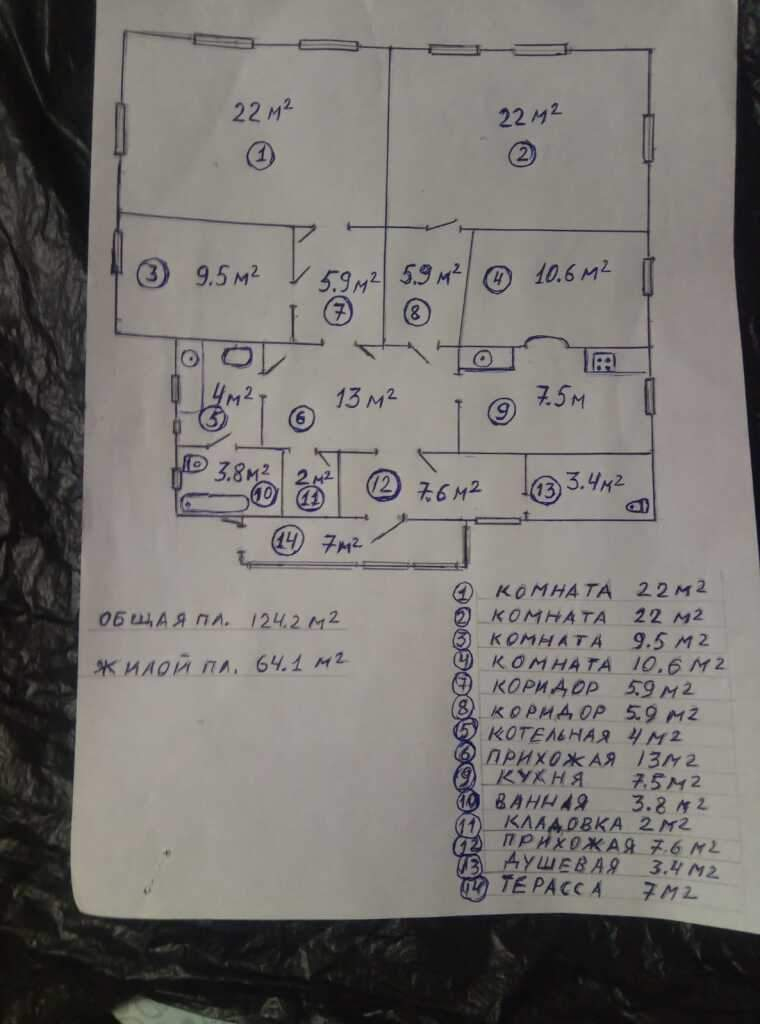 22 м²
22 м²
1
2
3
9.5 м²
5.9 м²
7
5.9 м²
8
4
10.6 м²
4 м²
5
6
13 м²
9
7.5 м
3.8 м²
10
2 м²
11
12
7.6 м²
13
3.4 м²
14
7 м²
ОБЩАЯ ПЛ. 124.2 м²
ЖИЛОЙ ПЛ. 64.1 м²
1 КОМНАТА 22 м2
2 КОМНАТА 22 м2
3 КОМНАТА 9.5 м2
4 КОМНАТА 10.6 м2
7 КОРИДОР 5.9 м2
8 КОРИДОР 5.9 м2
5 КОТЕЛЬНАЯ 4 м2
6 ПРИХОЖАЯ 13 м2
9 КУХНЯ 7.5 м2
10 ВАННАЯ 3.8 м2
11 КЛАДОВКА 2 м2
12 ПРИХОЖАЯ 7.6 м2
13 ДУШЕВАЯ 3.4 м2
14 ТЕРАССА 7 м2